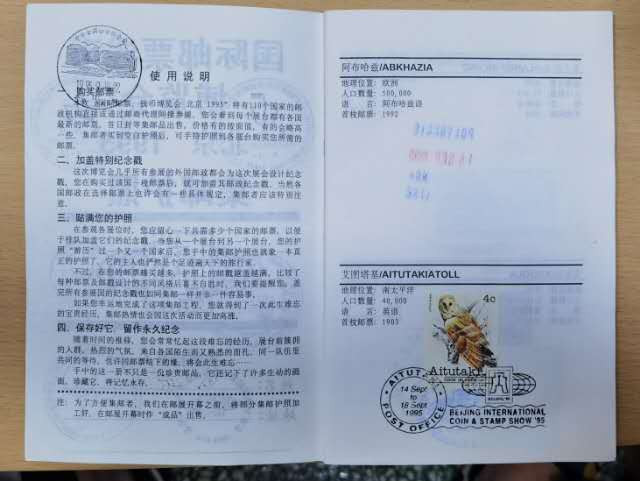 使用说明
一、购买邮票
本次"国际邮票、钱币博览会 北京 1995"将有110个国家的邮
政机构直接或通过邮商代理间接参展。您会看到每个展台都有各国
最新的邮票、首日封等集邮品出售，价格有的按面值，有的会略高
一些。集邮者买到空白护照后，可手持护照到各展台购买您所需的
邮票。
二、加盖特别纪念戳
这次博览会几乎所有参展的外国邮政都会为这次展会设计纪念
戳，您在购买过该国一枚邮票后，就可加盖其邮政纪念戳，当然各
国邮政在选择邮票上也许会有一些具体规定，集邮者应该特别注
意。
三、贴满您的护照
在参观各展位时，您应留心一下共需多少个国家的邮票，以便
于排队加盖它们的纪念戳。当您从一个展台到另一个展台，您的护
照"游历"过一个又一个国家后，您手中的集邮护照也就象一本真
正的护照了，它的主人也俨然是个足迹满天下的旅行家。
不过，在您的邮票越买越多，护照上的邮戳越盖越满，比较了
每种邮票及邮戳设计的不同风格后喜不自胜时，我们要提醒您，盖
完所有参展国的纪念戳也如同集邮一样并非一件容易事。
如果您幸运地完成了这项集邮工程，您就得到了一次此生难忘
的宝贵经历，集邮热情也会因这次活动而更加高涨。
四、保存好它，留作永久纪念
随着时间的推移，您会常常忆起这段难忘的经历。展台前簇拥
的人群，热烈的气氛，来自各国陌生而又熟悉的面孔，同一队伍里
共同的等待，也许因邮票结下的缘，将会此生难忘……
手中的这一册不只是一份珍贵邮品，它还记下了许多生动的画
面，珍藏它，将记忆永存。
注：为了方便集邮者，我们在邮展开幕之前，将部分集邮护照加
工好，在邮展开幕时作"成品"出售。
阿布哈兹/ABKHAZIA
地理位置：欧洲
人口数量：500,000
语 言：阿布哈兹语
首枚邮票：1992
艾图塔基/AITUTAKIATOLL
地理位置：南太平洋
人口数量：40,000
语 言：英语
首枚邮票：1903
4c
Aitutaki
AITUTAKI
14 Sept
to
18 Sept
1995
POST OFFICE
BEIJING'95
BEIJING INTERNATIONAL
COIN & STAMP SHOW '95